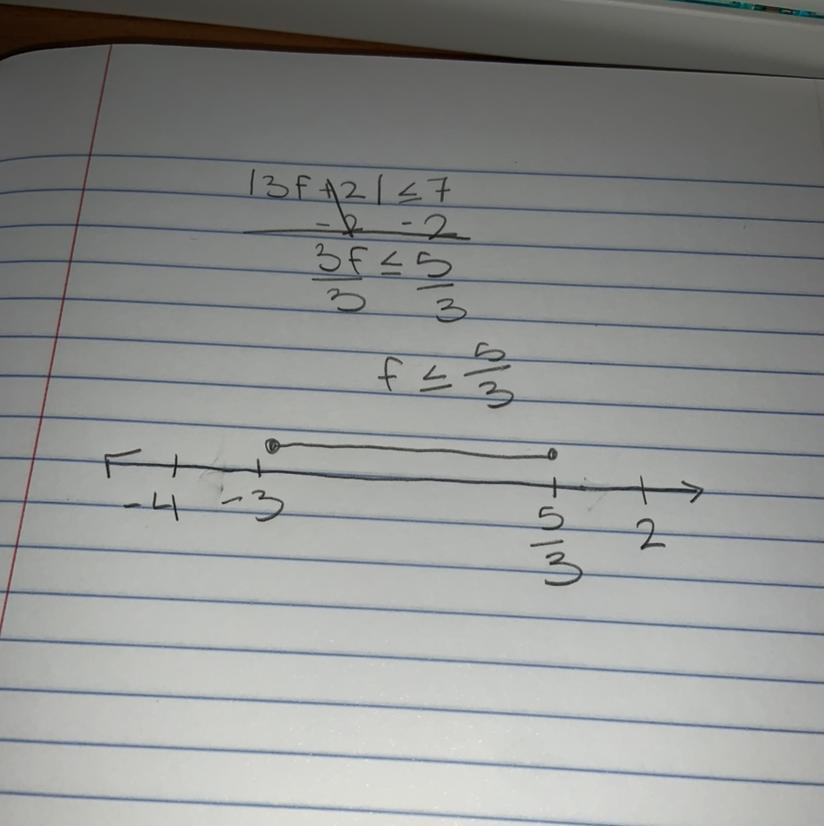 |3f+2| ≤ 7
-2 -2
3f ≤ 5
3 3
f ≤ 5/3
-4 -3 5/3 2